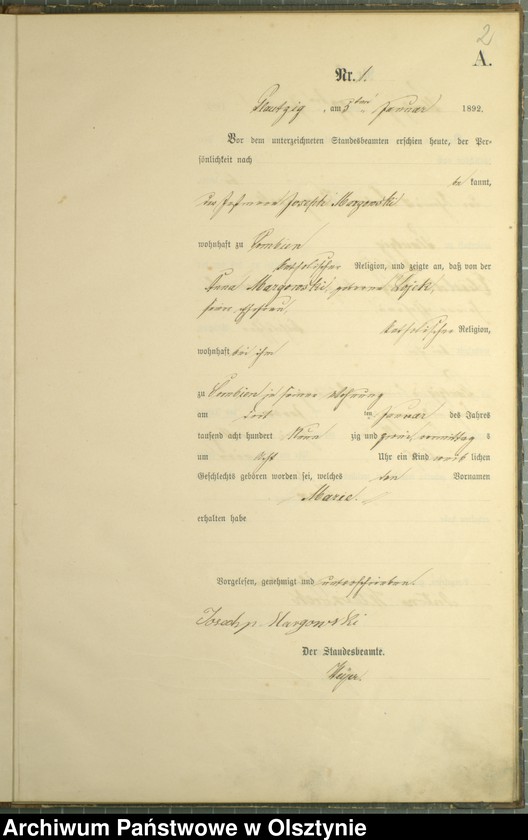 2
A.
Nr. 1.
Plautzig, am 5ten Januar 1892.
Vor dem unterzeichneten Standesbeamten erschien heute, der Per-
sönlichkeit nach
be kannt,
Joseph Margowski
wohnhaft zu
katholischer Religion, und zeigte an, daß von der
Anna Margowski, geborene
seiner Ehefrau,
katholischer Religion,
wohnhaft bei ihm
zu in seiner Wohnung
am ten Januar des Jahres
tausend acht hundert Neun zig und zwei, vormittag s
um acht Uhr ein Kind weib lichen
Geschlechts geboren worden sei, welches den Vornamen
Marie.
erhalten habe
Vorgelesen, genehmigt und unterschrieben
Joseph Margowski
Der Standesbeamte.
Archiwum Państwowe w Olsztynie